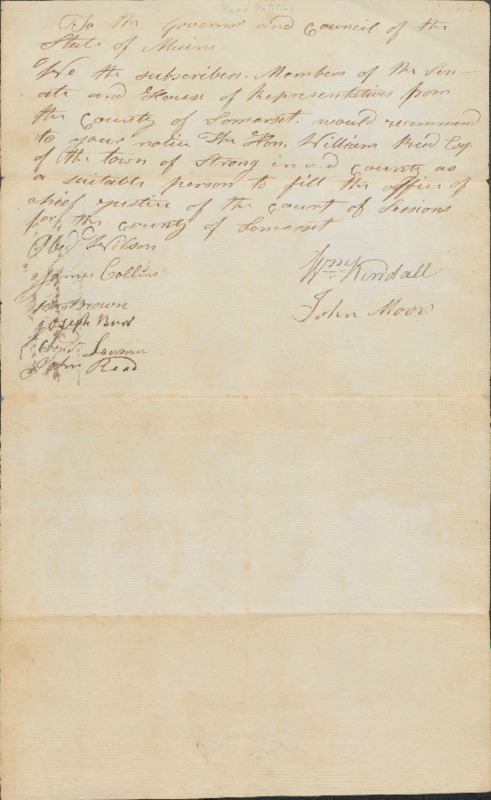 To the Governor and Council of the
State of Maine
We the subscribers. Members of the Sen-
ate and House of Representatives from
the County of Somerset. would recommend
to your notice The Hon. William Reed Esq.
of the town of Strong in sd County as
a suitable person to fill the office of
chief justice of the court of Sessions
for the county of Somerset
Obed Wilson
James Collins
John Brown
Joseph Burr
John Read
Wm Kindall
John Moor